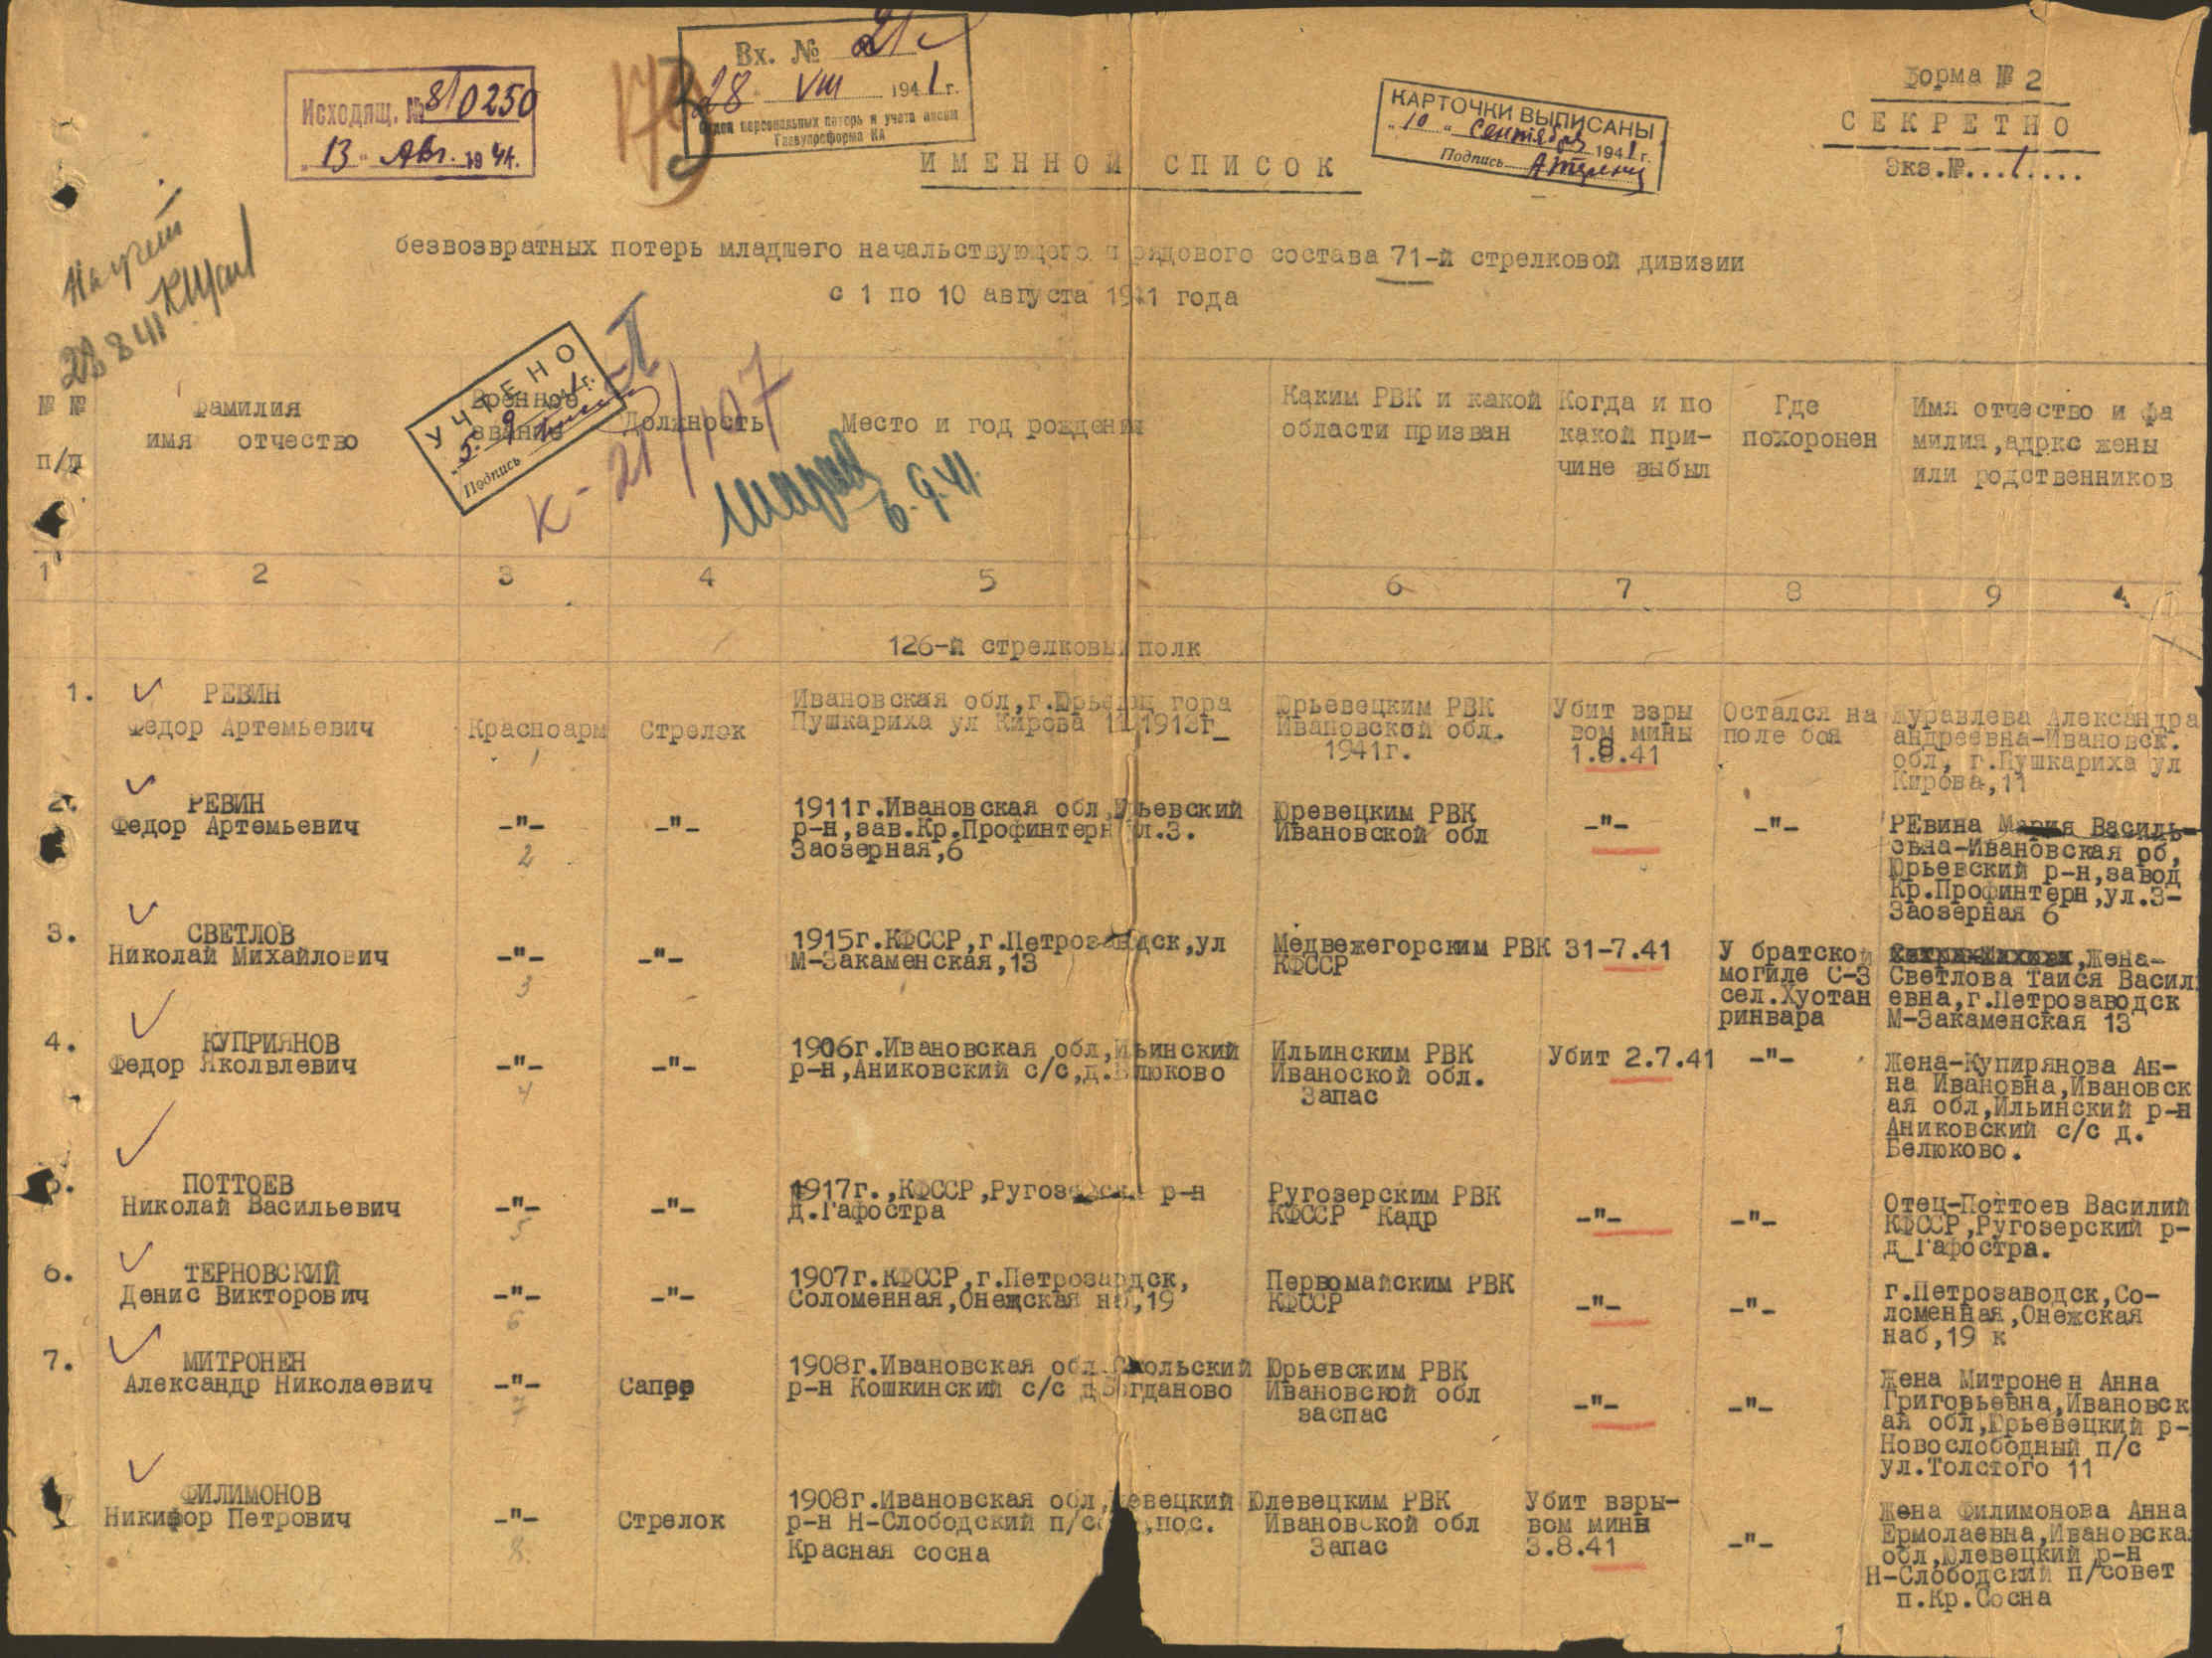 Форма № 2
СЕКРЕТНО
Экз.№...1....
Исходящ. № 8/0250
"13" Авг. 1941г.
Вх. № 21с
28 VIII 1941г.
Отдел персональных потерь и учета
Главупрформа КА
КАРТОЧКИ ВЫПИСАНЫ
"10" сентября 1941г.
Подпись
ИМЕННОЙ СПИСОК
безвозвратных потерь младшего начальствующего и рядового состава 71-й стрелковой дивизии
с 1 по 10 августа 1941 года
28 8 41
УЧТЕНО
Подпись
К-21/107
6.9.41.
№ № п/п
Фамилия имя отчество
Военное звание
Должность
Место и год рождения
Каким РВК и какой области призван
Когда и по какой при-чине выбыл
Где похоронен
Имя отчество и фа
милия,адркс жены
или родственников
1 2 3 4 5 6 7 8 9
126-й стрелковый полк
1. РЕВИН
Федор Артемьевич
Красноарм
1
Стрелок
Ивановская обл,г.Юрьевц гора
Пушкариха ул Кирова 11 1913г_
Юрьевецким РВК
Ивановской обл.
1941г.
Убит взры
вом мины
1.8.41
Остался на
поле боя
Журавлева Александра
андреевна-Ивановск.
обл, г.Пушкариха ул
Кирова,11
2. РЕВИН
Федор Артемьевич
-"-
2
-"-
1911г.Ивановская обл,Юьевский
р-н,зав.Кр.Профинтерн ул.З.
Заозерная,6
Юревецким РВК
Ивановской обл
-"-
-"-
РЕвина Мария Василь-
евна-Ивановская об,
Юрьевский р-н,завод
Кр.Профинтерн,ул.З-
Заозерная 6
3. СВЕТЛОВ
Николай Михайлович
-"-
3
-"-
1915г.КФССР,г.Петрозаводск,ул
М-Закаменская,13
Медвежегорским РВК
КФССР
31-7.41
У братской
могиле С-З
сел.Хуотан
ринвара
Жена-
Светлова Таися Васил
евна,г.Петрозаводск
М-Закаменская 13
4. КУПРИЯНОВ
Федор Яколвлевич
-"-
4
-"-
1906г.Ивановская обл,Ильинский
р-н,Аниковский с/с,д.Белюково
Ильинским РВК
Иваноской обл.
Запас
Убит 2.7.41
-"-
Жена-Купирянова Ан-
на Ивановна,Ивановск
ая обл,Ильинский р-н
Аниковский с/с д.
Белюково.
5. ПОТТОЕВ
Николай Васильевич
-"-
5
-"-
1917г.,КФССР,Ругозерский р-н
д.Гафостра
Ругозерским РВК
КФССР Кадр
-"-
-"-
Отец-Поттоев Василий
КФССР,Ругозерский р-
д_Гафостра.
6. ТЕРНОВСКИЙ
Денис Викторович
-"-
6
-"-
1907г.КФССР,г.Петрозавдск,
Соломенная,Онежская наб,19
Первомайским РВК
КФССР
-"-
-"-
г.Петрозаводск,Со-
ломенная,Онежская
наб,19 к
7. МИТРОНЕН
Александр Николаевич
-"-
7
Сапер
1908г.Ивановская обл.Сокольский
р-н Кошкинский с/с д.Богданово
Юрьевским РВК
Ивановской обл
заспас
-"-
-"-
Жена Митронен Анна
Григорьевна,Ивановск
ая обл,Юрьевецкий р-
Новослободный п/с
ул.Толстого 11
ФИЛИМОНОВ
Никифор Петрович
-"-
8.
Стрелок
1908г.Ивановская обл, евецкий
р-н Н-Слободский п/с ,пос.
Красная сосна
Юлевецким РВК
Ивановской обл
Запас
Убит взры-
вом мины
3.8.41
-"-
Жена Филимонова Анна
Ермолаевна,Ивановска
обл,Юлевецкий р-н
Н-Слободский п/совет
п.Кр.Сосна